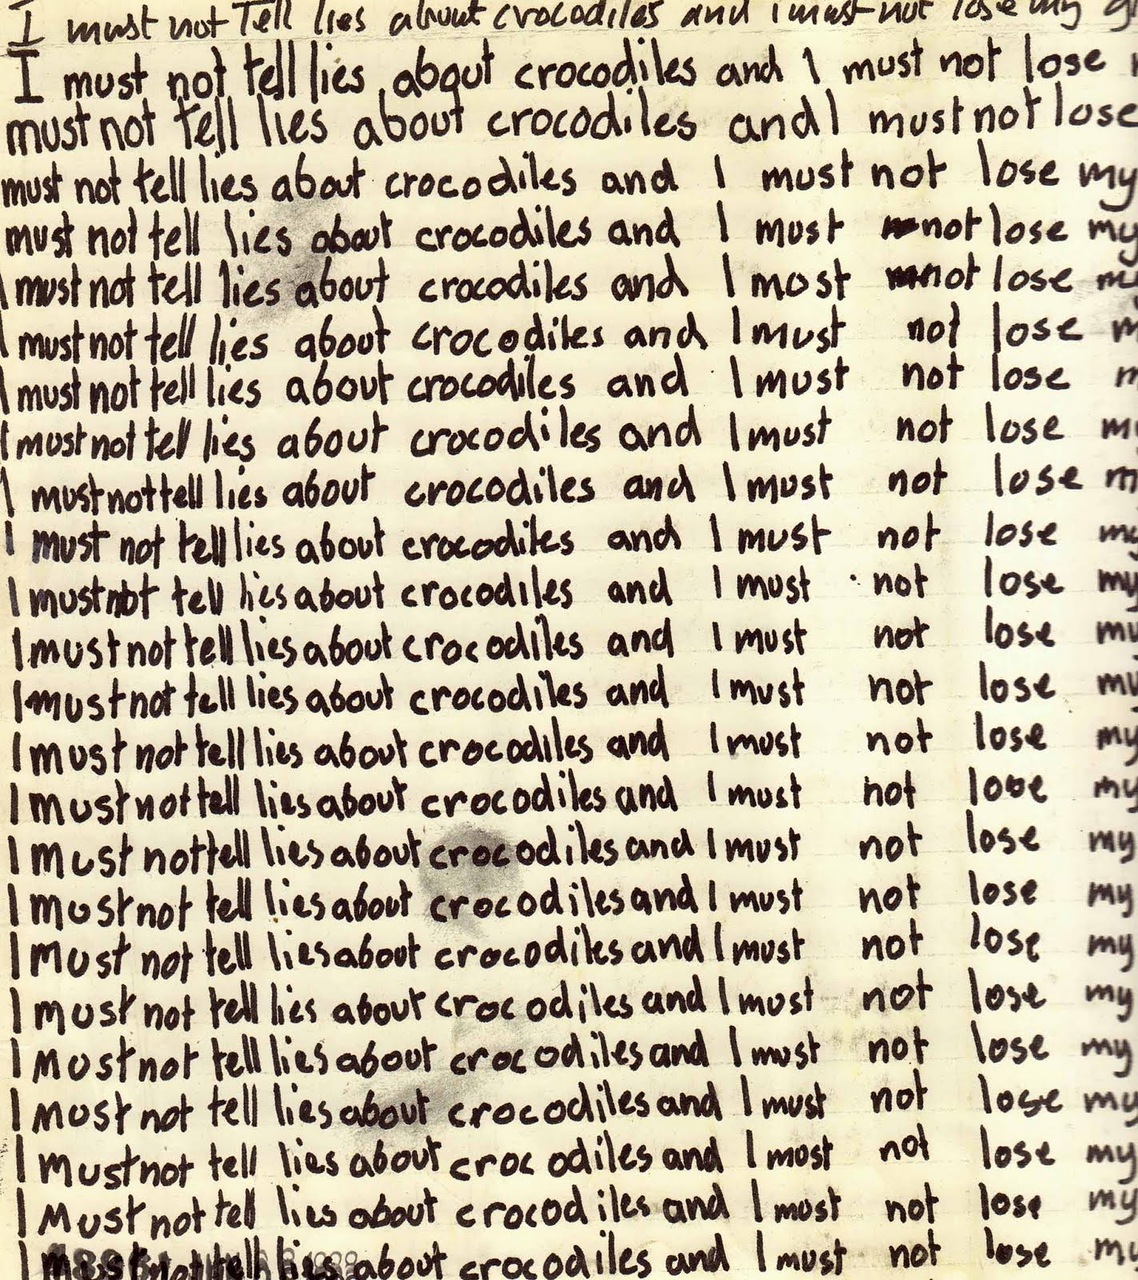 I must not Tell lies about crocodiles and i must not lose my
I must not tell lies about crocodiles and I must not lose
must not tell lies about crocodiles and I must not lose
must not tell lies about crocodiles and I must not lose my
must not tell lies about crocodiles and I must not lose my
I must not tell lies about crocodiles and I most not lose
I must not tell lies about crocodiles and I must not lose
I must not tell lies about crocodiles and I must not lose
I must not tell lies about crocodiles and I must not lose
I must not tell lies about crocodiles and I must not lose
I must not tell lies about crocodiles and I must not lose
I must not tell lies about crocodiles and I must not lose my
I must not tell lies about crocodiles and I must not lose my
I must not tell lies about crocodiles and I must not lose my
I must not tell lies about crocodiles and I must not lose my
I must not tell lies about crocodiles and I must not lose my
I must not tell lies about crocodiles and I must not lose my
I most not tell lies about crocodiles and I must not lose my
I Must not tell lies about crocodiles and I must not lose my
I must not tell lies about crocodiles and I must not lose my
I Most not tell lies about crocodiles and I must not lose my
I Most not tell lies about crocodiles and I must not lose my
I Must not tell lies about crocodiles and I most not lose my
I Must not tell lies about crocodiles and I must not lose my
I must not tell lies about crocodiles and I must not lose